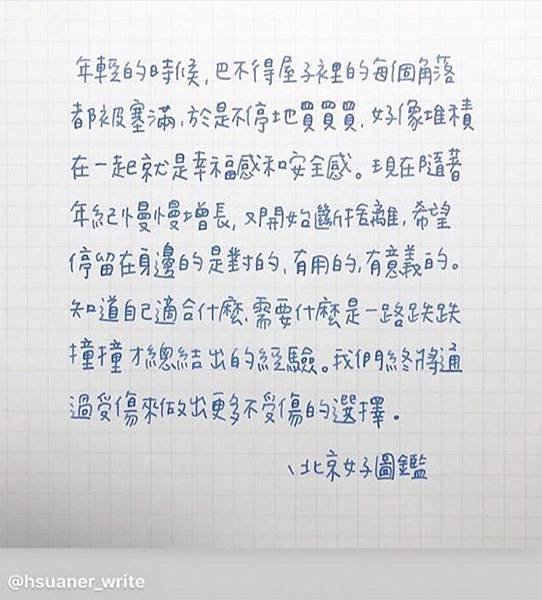 年輕的時候,巴不得屋子裡的每個角落
都被塞滿,於是不停地買買買,好像堆積
在一起就是幸福感和安全感。現在隨著
年紀慢慢增長,又開始斷捨離,希望
停留在身邊的是對的,有用的,有意義的。
知道自己適合什麼,需要什麼是一路跌跌
撞撞才總結出的經驗。我們終將通
過受傷來做出更多不受傷的選擇。
、北京女子圖鑑
@hsuaner_write